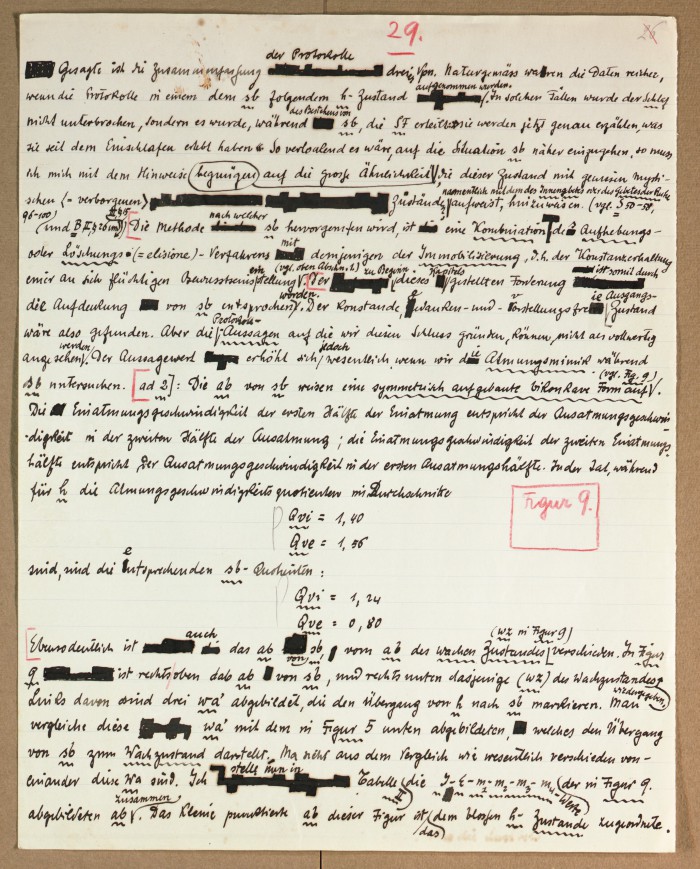 29.
der Protokolle
Gesagte ist die Zusammenfassung dreier Vpn. Naturgemäss waren die Daten reicher,
aufgenommen wurden.
wenn die Protokolle in einem dem sb folgenden h-Zustand In solchen Fällen wurde der Schlaf
des Bestehens von
nicht unterbrochen, sondern es wurde, während sb, die SF erteilt: sie werden jetzt genau erzählen, was
sie seit dem Einschlafen erlebt haben. So verlockend es wäre, auf die Situation sb näher einzugehen, so muss
ich mich mit dem Hinweise begnügen auf die grosse Ähnlichkeit, die dieser Zustand mit gewissen mysti-
namentlich mit dem des Innengebetes oder des Gebetes der Ruhe
schen (= verborgenen) Zustände aufweist, hinzuweisen. (vgl. I 50-58,
96-100) #45
nach welcher
(und B II 426 ) [Die Methode sb hervorgerufen wird, ist eine Kombination des Aufhebungs-
mit
oder Löschungs- (= elisione)-Verfahrens demjenigen der Immobilisierung, d.h. der Konstanzerhaltung
ein (vgl. oben Abschn. ) zu Beginn Kapitels ist somit durch
einer an sich flüchtigen Bewusstseinsstellung. [Der dieses gestellten Forderung
worden. v ie Ausgangs-
die Aufdeckung von sb entsprochen. Der konstante, gedanken- und vorstellungsfreie Zustand
Protokoll-
wäre also gefunden. Aber die Aussagen auf die wir diesen Schluss gründen, können nicht als vollwertig
werden jedoch
angesehen. Der Aussagewert erhöht sich wesentlich, wenn wir die Atmungsmimik während
(vgl. Fig. 9)
sb untersuchen. [ad 2]: Die ab von sb weisen eine symmetrisch aufgebaute bikonkave Form auf.
Die Einatmungsgeschwindigkeit der ersten Hälfte der Einatmung entspricht der Ausatmungsgeschwin-
digkeit in der zweiten Hälfte der Ausatmung; die Einatmungsgeschwindigkeit der zweiten Einatmungs-
hälfte entspricht der Ausatmungsgeschwindigkeit in der ersten Ausatmungshälfte. In der Tat, während
für h die Atmungsgeschwindigkeitsquotienten im Durchschnitt
Figur 9.
Qvi = 1,40
Qve = 1,56
sind, sind die entsprechenden sb-Quotienten:
Qvi = 1,24
Qve = 0,80
auch (wz in Figur 9)
[Ebenso deutlich ist das ab von sb, vom ab des wachen Zustandes verschieden. In Figur
9 ist rechts oben das ab von sb, und rechts unten dasjenige (wz) des Wachzustandes
wiedergegeben,
Links davon sind drei wa abgebildet, die den Übergang von h nach sb markieren. Man
vergleiche diese wa mit dem in Figur 5 unten abgebildeten, welches den Übergang
von sb zum Wachzustand darstellt. Man sieht aus dem Vergleich wie wesentlich verschieden von-
stelle nun in
einander diese wa sind. Ich Tabelle die I-E-m-m₂-m₃-m₄ (der in Figur 9.
zusammen II Werte
abgebildeten ab. Das kleine punktierte ab dieser Figur ist dem blossen h-Zustande zugeordnet.
(das